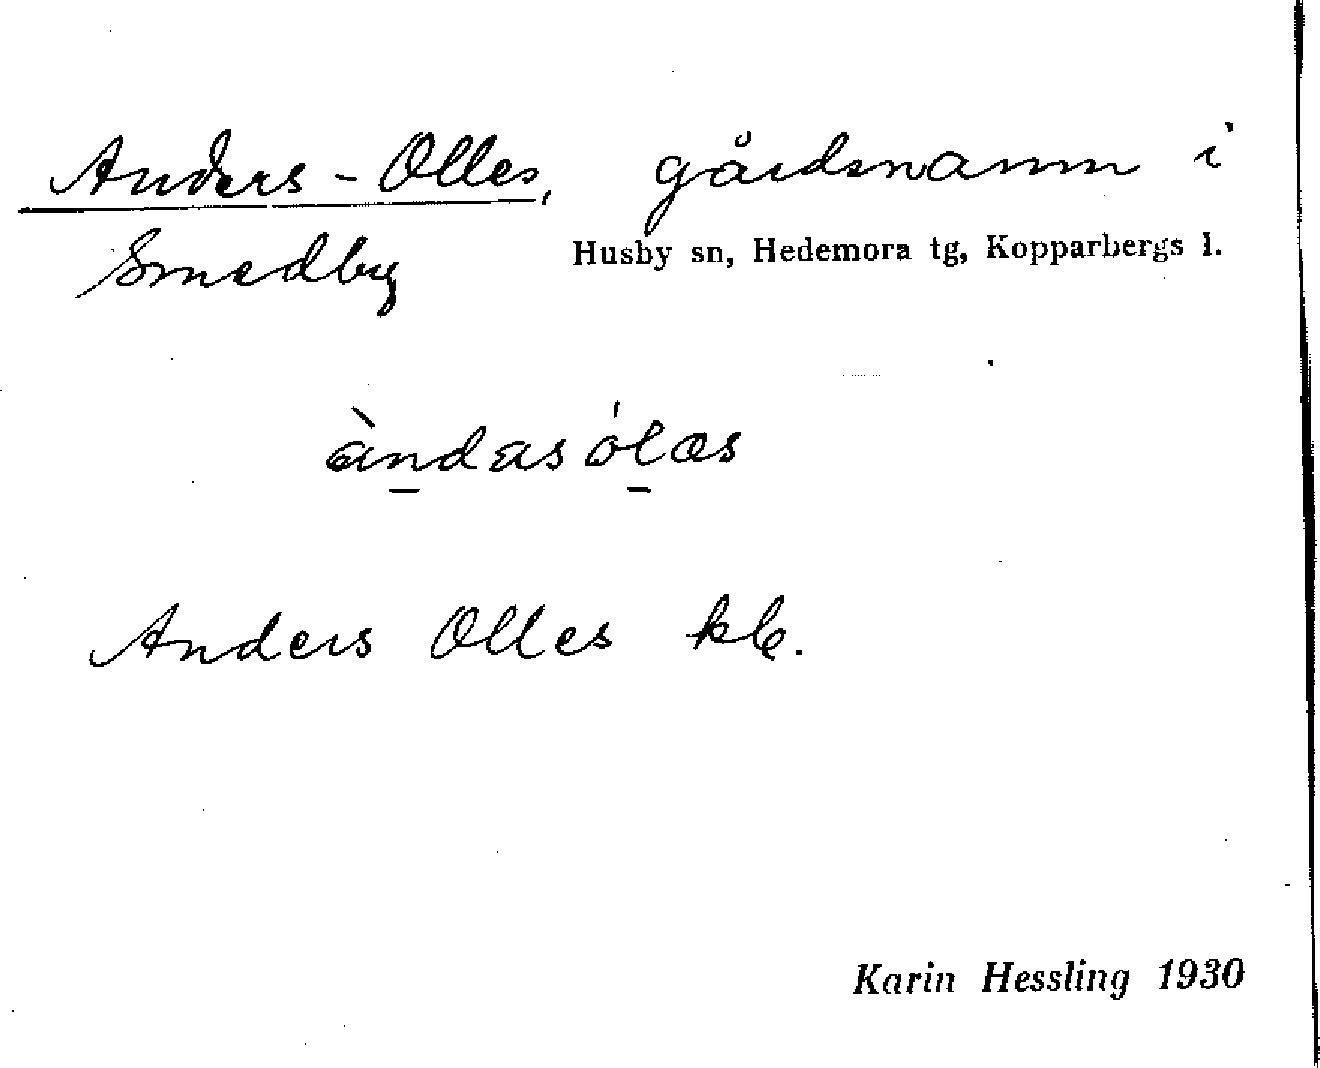 Anders-Olles, gårdsnamn i
Smedby Husby sn, Hedemora tg, Kopparbergs l.
àndas ólas
Anders Olles kb.
Karin Hessling 1930